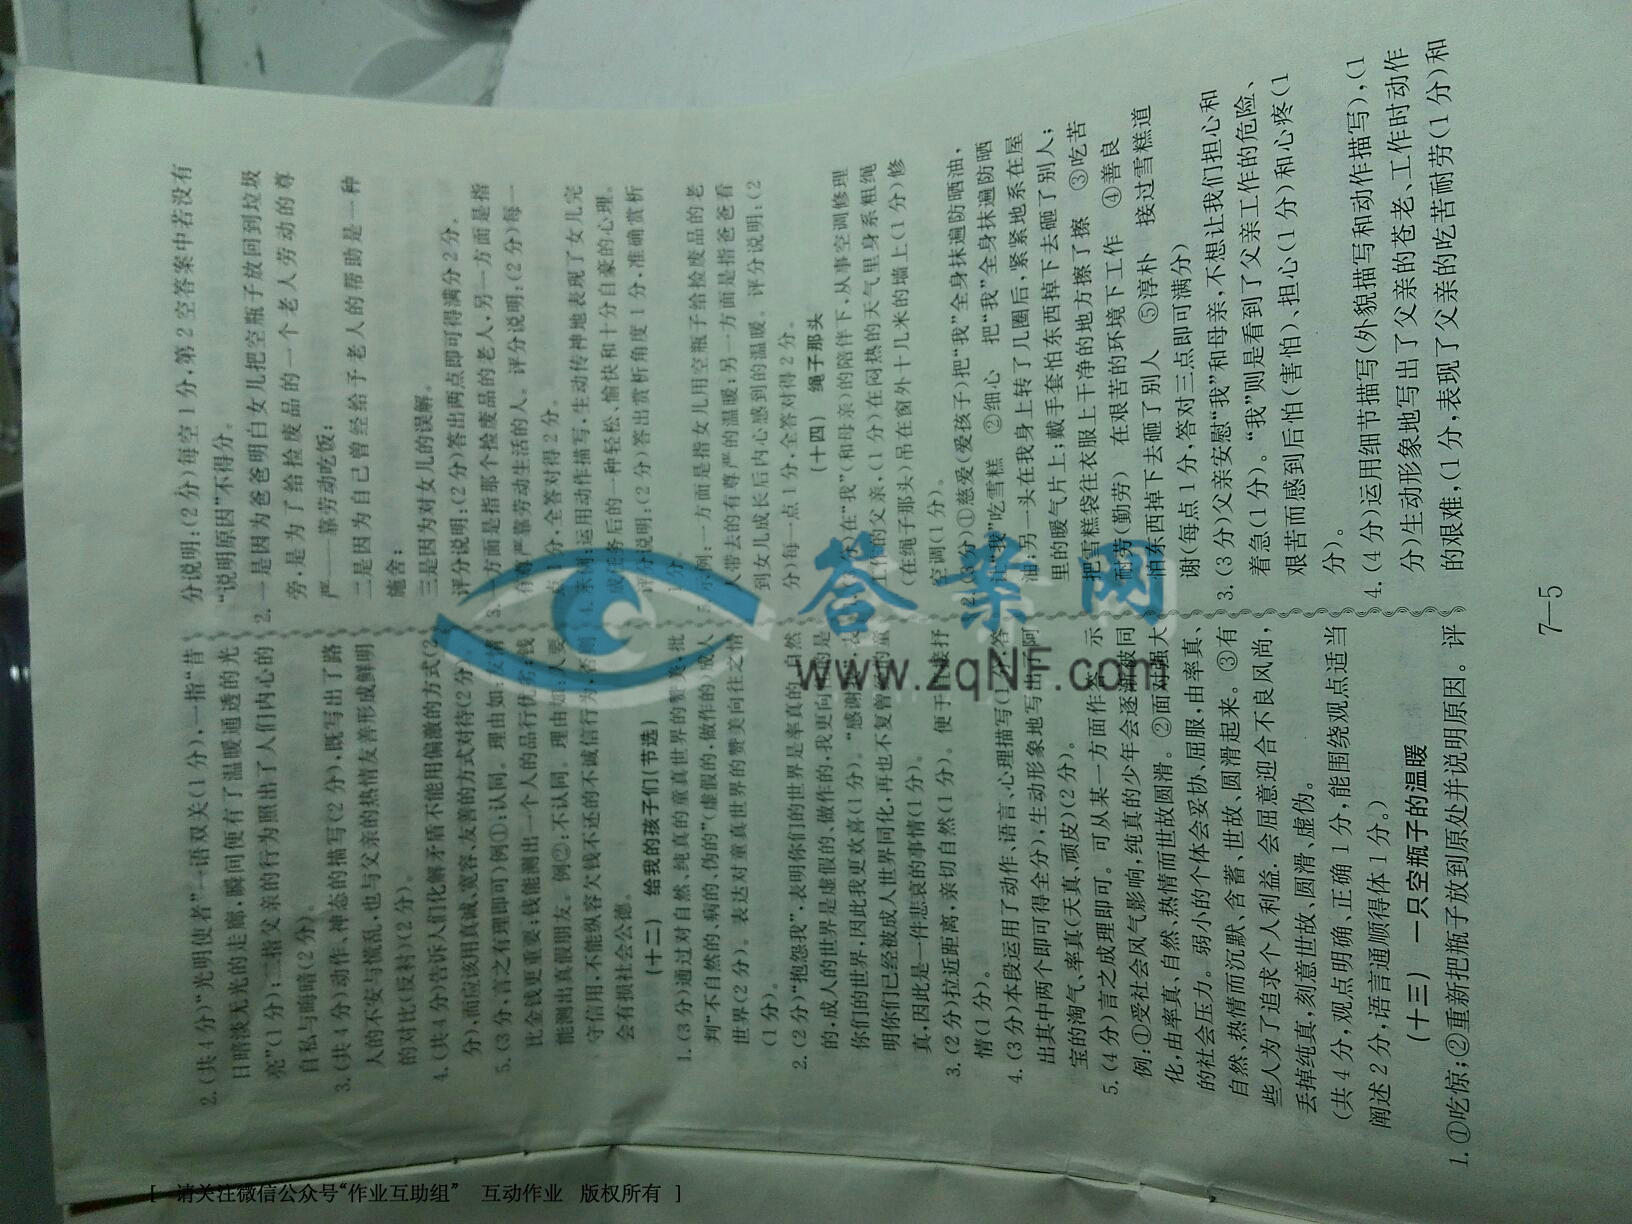 2.(共4分)“光明使者”一语双关(1分),一指“昔
日暗淡无光的走廊,瞬间便有了温暖通透的光
亮”(1分);二指父亲的行为照出了人们内心的
自私与晦暗(2分)。
3.(共4分)动作、神态的描写(2分),既写出了路
人的不安与慌乱,也与父亲的热情友善形成鲜明
的对比(反衬)(2分)。
4.(共4分)告诉人们化解矛盾不能用偏激的方式(2
分),而应该用真诚、宽容、友善的方式对待(2分)。
5.(3分,言之有理即可)例①:认同。理由如:友情
比金钱更重要;钱能测出一个人的品行优劣;钱
能测出真假朋友。例②:不认同。理由如:人要
守信用;不能纵容欠钱不还的不诚信行为,否则
会有损社会公德。
(十二) 给我的孩子们(节选)
1.(3分)通过对自然、纯真的童真世界的赞美,批
判“不自然的、病的、伪的”(虚假的,做作的)成人
世界(2分)。表达对童真世界的赞美向往之情
(1分)。
2.(2分)“抱怨我”,表明你们的世界是率真的、自然
的,成人的世界是虚假的、做作的,我更向往的是
你们的世界,因此我更欢喜(1分)。“感谢我”,表
明你们已经被成人世界同化,再也不复曾经的童
真,因此是一件悲哀的事情(1分)。
3.(2分)拉近距离,亲切自然(1分)。便于直接抒
情(1分)。
4.(3分)本段运用了动作、语言、心理描写(1分,答
出其中两个即可得全分),生动形象地写出了阿
宝的淘气、率真(天真、顽皮)(2分)。
5.(4分)言之成理即可。可从某一方面作答。示
例:①受社会风气影响,纯真的少年会逐渐被同
化,由率真、自然、热情而世故圆滑。②面对强大
的社会压力。弱小的个体会妥协、屈服,由率真、
自然、热情而沉默、含蓄、世故、圆滑起来。③有
些人为了追求个人利益,会屈意迎合不良风尚,
丢掉纯真,刻意世故、圆滑、虚伪。
(共4分,观点明确、正确1分,能围绕观点适当
阐述2分,语言通顺得体1分。)
(十三) 一只空瓶子的温暖
1.①吃惊;②重新把瓶子放到原处并说明原因。评
分说明:(2分)每空1分,第2空答案中若没有
“说明原因”不得分。
2.一是因为爸爸明白女儿把空瓶子放回到垃圾
旁,是为了给捡废品的一个老人劳动的尊
严——靠劳动吃饭;
二是因为自己曾经给予老人的帮助是一种
施舍;
三是因为对女儿的误解。
评分说明:(2分)答出两点即可得满分2分。
3.一方面是指那个捡废品的老人,另一方面是指
有尊严靠劳动生活的人。评分说明:(2分)每一
点1分,全答对得2分。
4.示例:运用动作描写,生动传神地表现了女儿完
成任务后的一种轻松、愉快和十分自豪的心理。
评分说明:(2分)答出赏析角度1分,准确赏析
1分。
5.示例:一方面是指女儿用空瓶子给捡废品的老
人带去的有尊严的温暖;另一方面是指爸爸看
到女儿成长后内心感到的温暖。评分说明:(2
分)每一点1分,全答对得2分。
(十四) 绳子那头
在“我”(和母亲)的陪伴下,从事空调修理
工作的父亲,(1分)在闷热的天气里身系粗绳
(在绳子那头)吊在窗外十几米的墙上(1分)修
空调(1分)。
2.(3分)①慈爱(爱孩子)把“我”全身抹遍防晒油,
让“我”吃雪糕 ②细心 把“我”全身抹遍防晒
油;另一头在我身上转了几圈后,紧紧地系在屋
里的暖气片上;戴手套怕东西掉下去砸了别人;
把雪糕袋往衣服上干净的地方擦了擦 ③吃苦
耐劳(勤劳) 在艰苦的环境下工作 ④善良
怕东西掉下去砸了别人 ⑤淳朴 接过雪糕道
谢(每点1分,答对三点即可满分)
3.(3分)父亲安慰“我”和母亲,不想让我们担心和
着急(1分)。“我”则是看到了父亲工作的危险、
艰苦而感到后怕(害怕)、担心(1分)和心疼(1
分)。
4.(4分)运用细节描写(外貌描写和动作描写),(1
分)生动形象地写出了父亲的苍老、工作时动作
的艰难,(1分,表现了父亲的吃苦耐劳(1分)和
7—5
答案网
www.zqNF.com
[ 请关注微信公众号“作业互助组” 互动作业 版权所有 ]